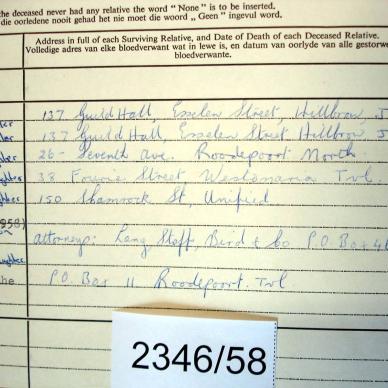 the deceased never had any relative the word "None" is to be inserted.
die oorledene nooit gehad het nie moet die woord „Geen" ingevul word.
Address in full of each Surviving Relative, and Date of Death of each Deceased Relative.
Volledige adres van elke bloedverwant wat in lewe is, en datum van oorlyde van alle gestorwe
bloedverwante.
137 Guild Hall, Esselen Street, Hillbrow, J
137 Guild Hall, Esselen Street Hillbrow, J
26 - Seventh Ave. Roodepoort North.
38 Fourie Street Westonaria Tvl.
150 Shamrock St, Unified
958)
attorneys: Bird & Co P.O. Box
he P.O. Box 11 Roodepoort. Tvl
2346/58